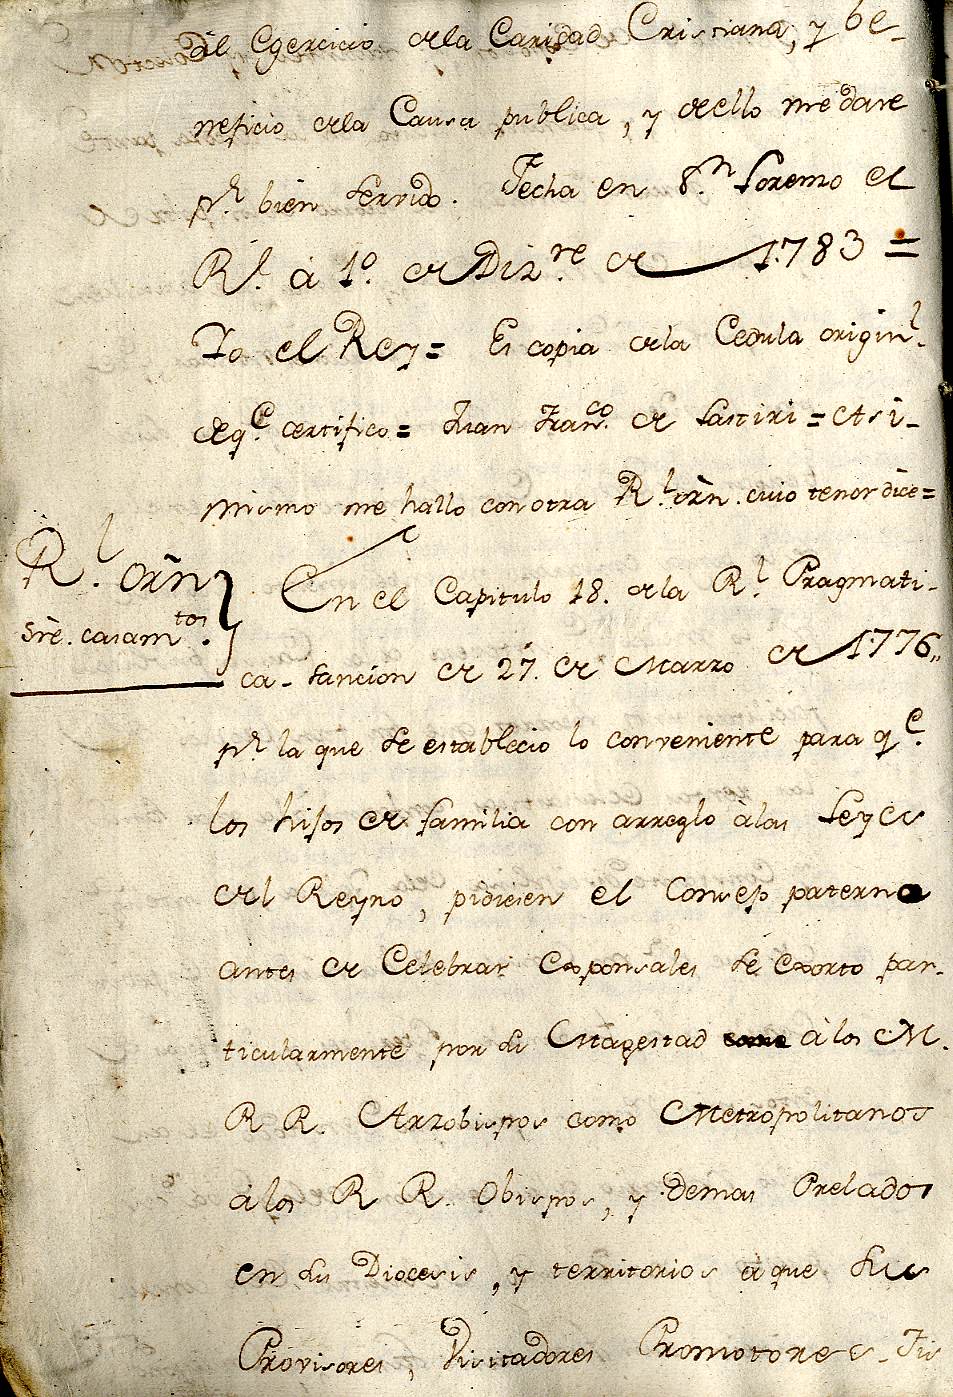 al Egercicio dela Caridad Cristiana, y be-
neficio dela Causa publica, y dello me dare
pr. bien servido. Fecha en Sn. Lorenzo el
Rl. à 1º. de Dizre de 1783 =
Yo el Rey = Es copia dela Cedula originl.
deqe. certifico = Juan Franco. de Lastiri = Asi-
mismo me hallo con otra Rl. orn. cuio tenor dice =
Rl. orñ
sre. casamtos.
En el Capitulo 18. dela Rl. Pragmati-
ca - sancion de 27. de Marzo de 1776,,
pr. la que se establecio lo conveniente para qe.
los hijos de familia con arreglo àlas Leyes
del Reyno, pidiesen el Consejo paterno
antes de Celebrar Esponsales se Exorto par-
ticularmente por su Magestad àlos M.
R R. Arzobispos como Metropolitanos
àlos R R. Obispos, y demas Prelados
en sus Diocesis, y territorios à que sus
Provisores, Visitadores Promotores - Fis